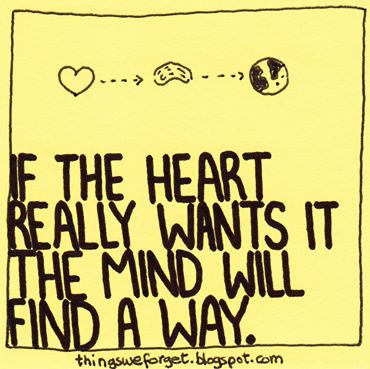 IF THE HEART
REALLY WANTS IT
THE MIND WILL
FIND A WAY.
thingsweforget.blogspot.com